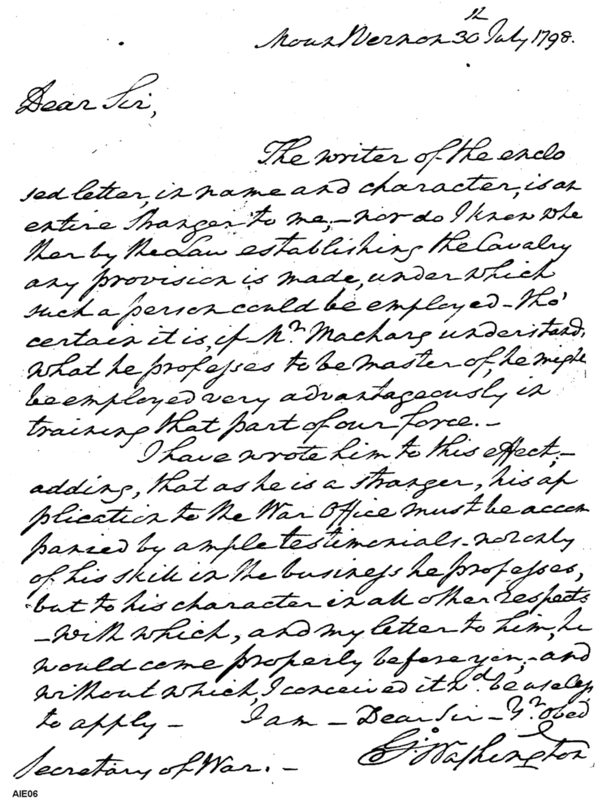 Mount Vernon 30th July 1798.
Dear Sir,
The writer of the enclo
sed letter, in name and character, is an
entire stranger to me,—nor do I know whe
ther by the Law establishing the Cavalry
any provision is made, under which
such a person could be employed—tho'
certain it is, if Mr. Macharg understands
what he professes to be master of, he might
be employed very advantageously in
training that part of our force.—
I have wrote him to this effect;—
adding, that as he is a stranger, his ap
plication to the War Office must be accom
panied by ample testimonials—not only
of his skill in the business he professes,
but to his character in all other respects
—with which, and my letter to him, he
would come properly before you;—and
without which, I conceived it wd. be useless
to apply— I am—Dear Sir—Yr. Obed
Go: Washington
Secretary of War.—
AIE06